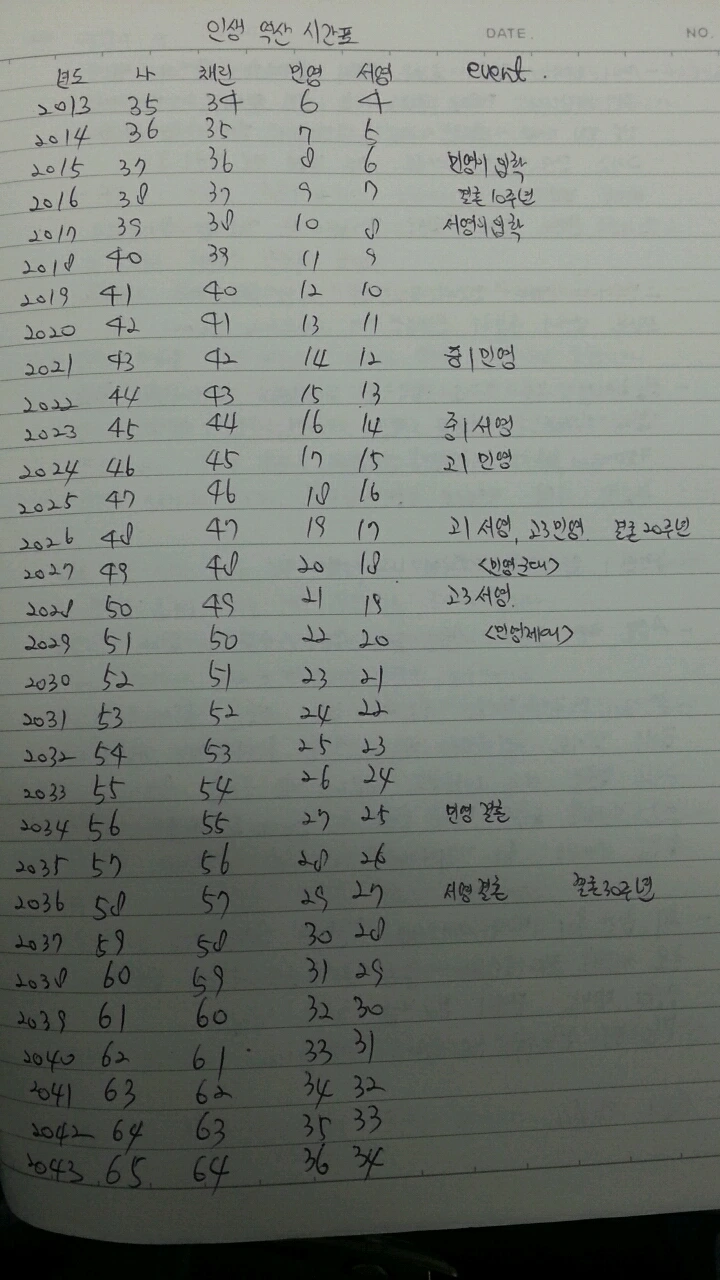 인생 역산 시간표 DATE. NO.
년도 나 채린 민영 서영 event.
2013 35 34 6 4
2014 36 35 7 5
2015 37 36 8 6 민영이 입학
2016 38 37 9 7 결혼 10주년
2017 39 38 10 8 서영이 입학
2018 40 39 11 9
2019 41 40 12 10
2020 42 41 13 11
2021 43 42 14 12 중1 민영
2022 44 43 15 13
2023 45 44 16 14 중1 서영
2024 46 45 17 15 고1 민영
2025 47 46 18 16
2026 48 47 19 17 고1 서영, 고3 민영. 결혼 20주년
2027 49 48 20 18 <민영군대>
2028 50 49 21 19 고3 서영.
2029 51 50 22 20 <민영제대>
2030 52 51 23 21
2031 53 52 24 22
2032 54 53 25 23
2033 55 54 26 24
2034 56 55 27 25 민영 결혼
2035 57 56 28 26
2036 58 57 29 27 서영 결혼 결혼 30주년
2037 59 58 30 28
2038 60 59 31 29
2039 61 60 32 30
2040 62 61 33 31
2041 63 62 34 32
2042 64 63 35 33
2043 65 64 36 34